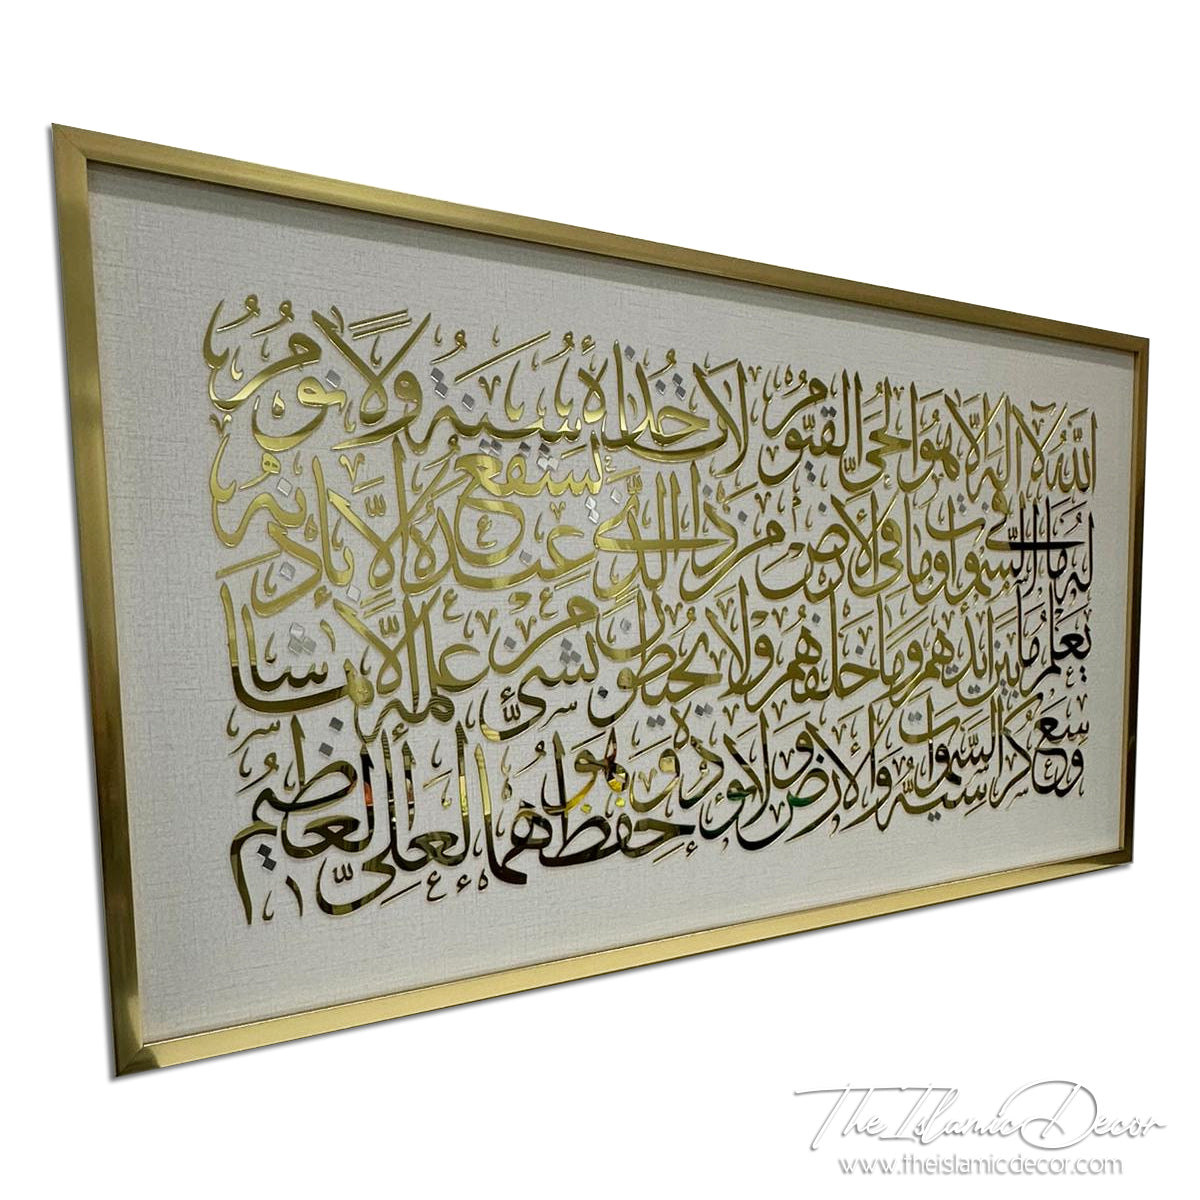 الله لا اله الا هو الحي القيوم لا تاخذه سنة ولا نوم
له ما في السموات وما في الارض من ذا الذي يشفع عنده الا باذنه
يعلم ما بين ايديهم وما خلفهم ولا يحيطون بشيء من علمه الا بما شاء
وسع كرسيه السموات والارض ولا يؤده حفظهما وهو العلي العظيم
The Islamic Decor
www.theislamicdecor.com